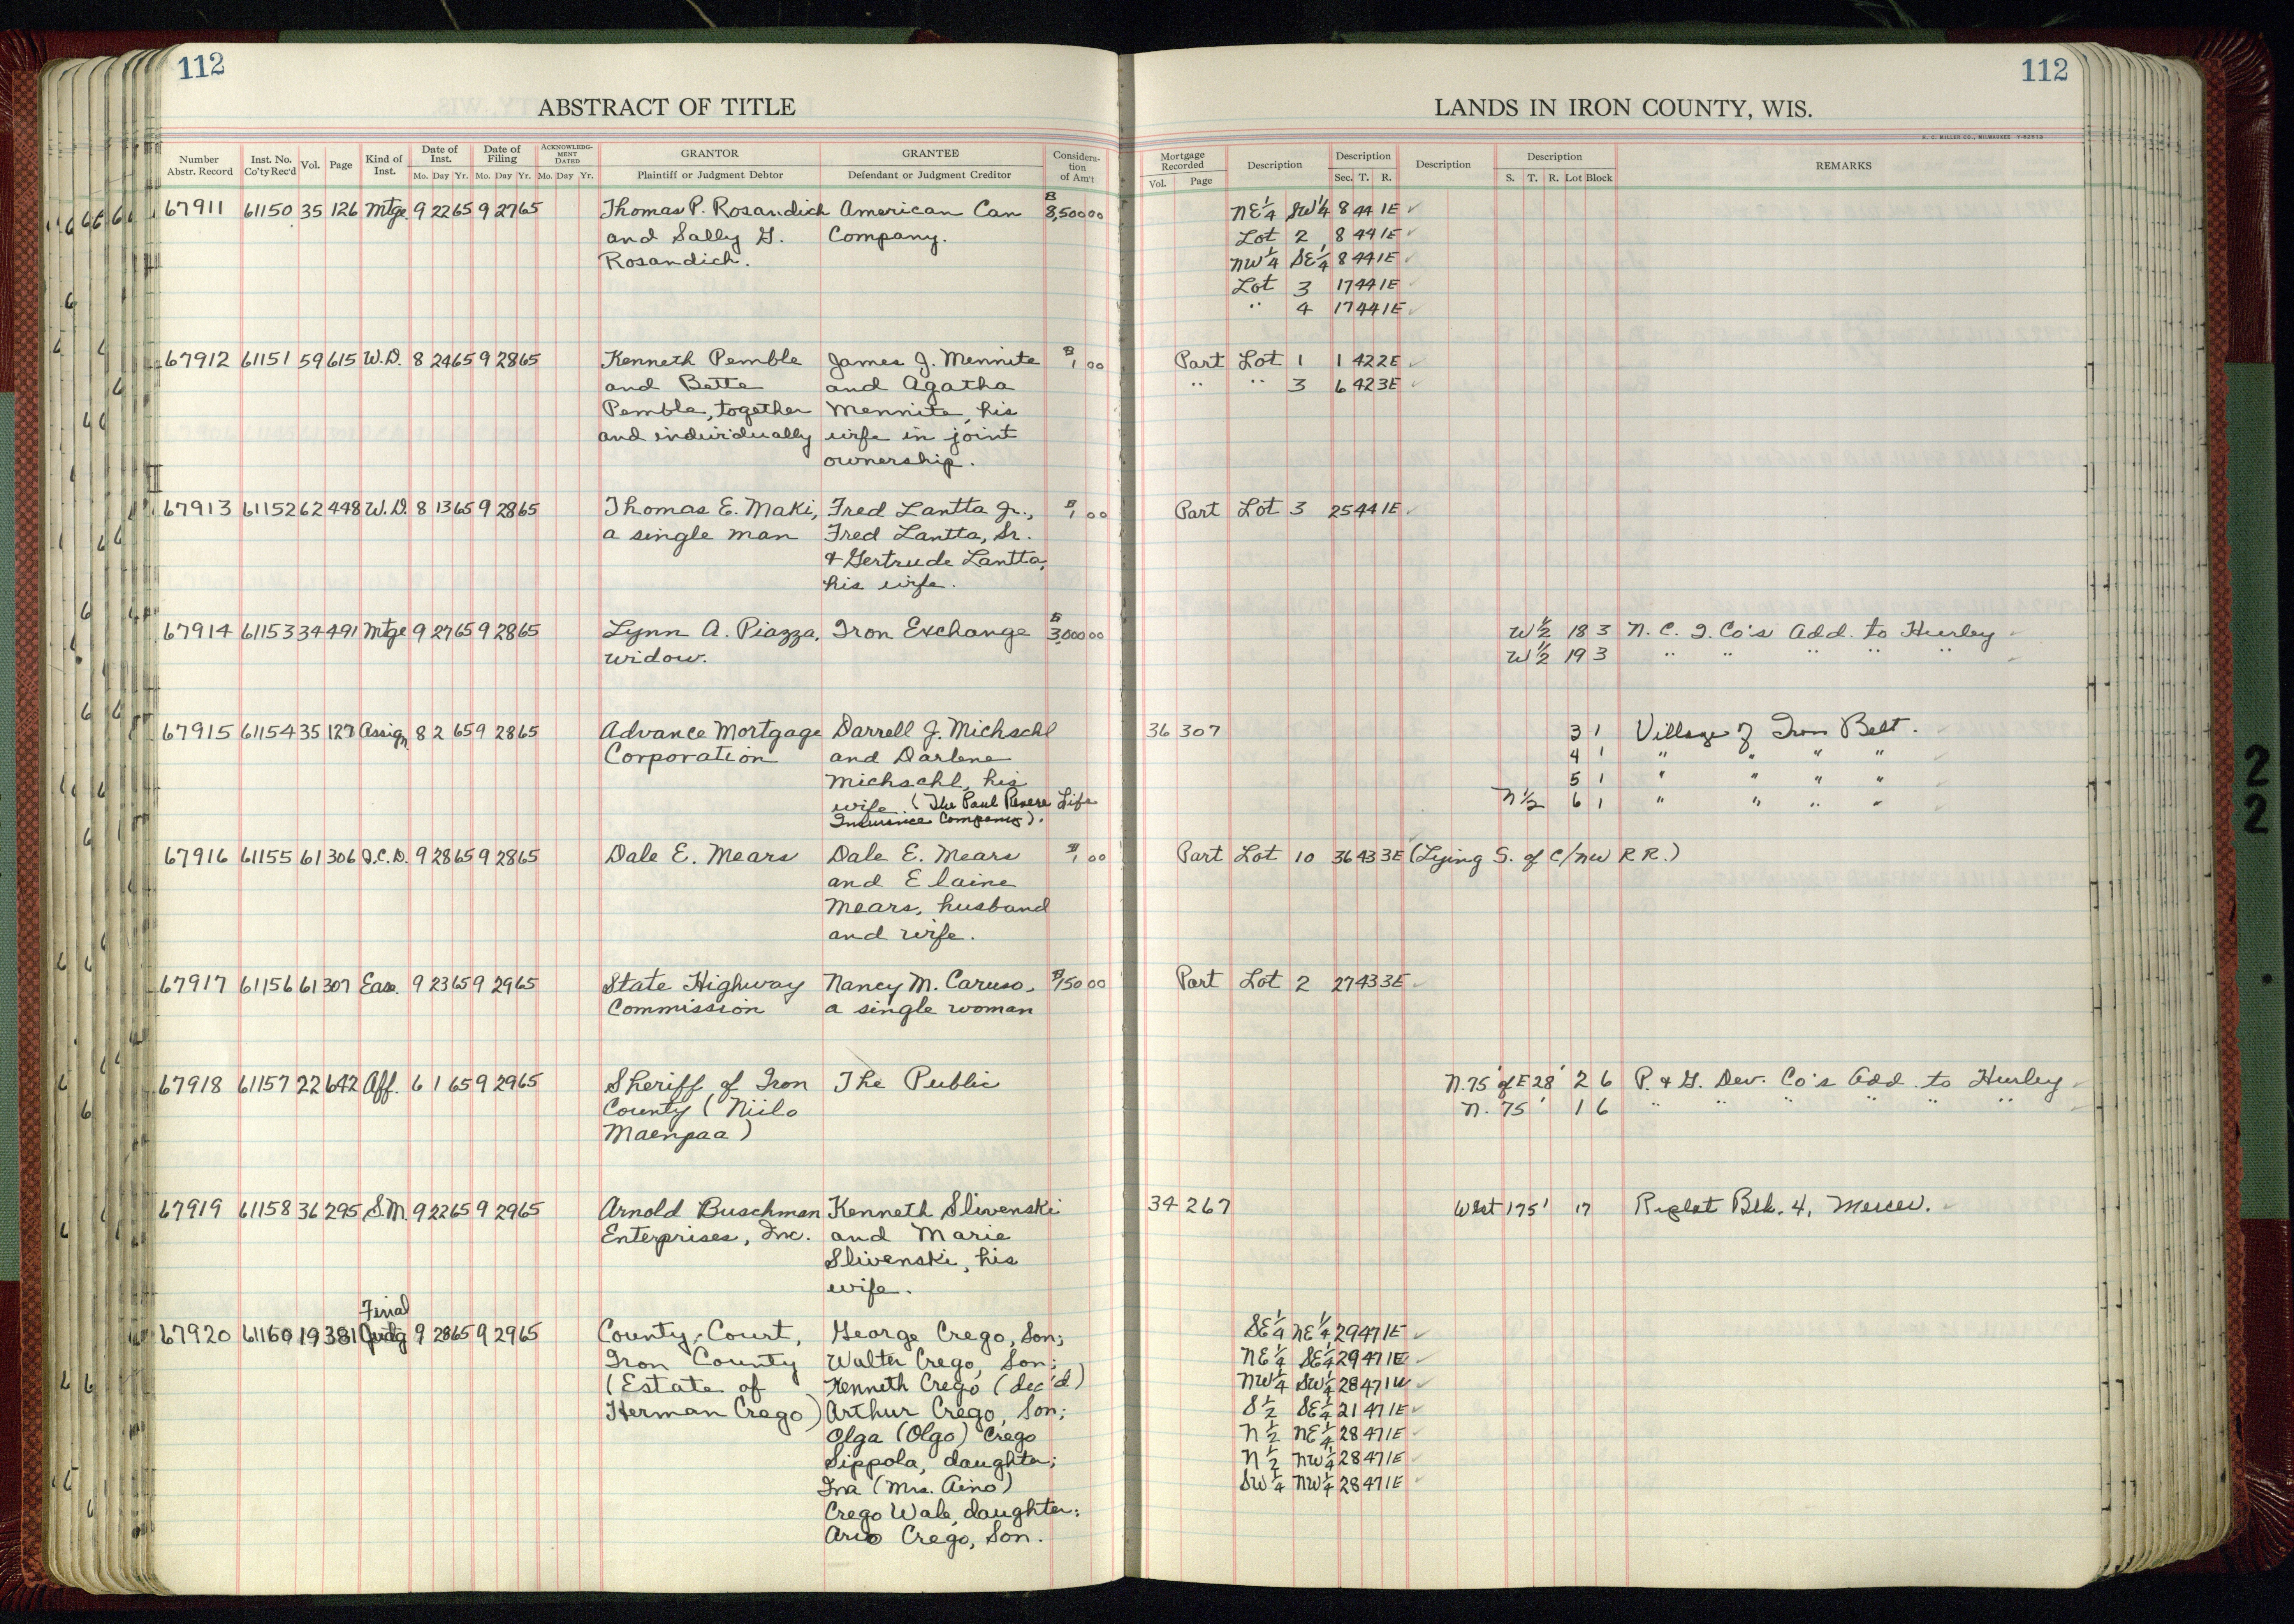 112
112
ABSTRACT OF TITLE
LANDS IN IRON COUNTY, WIS.
H. C. MILLER CO., MILWAUKEE
Number Abstr. Record
Inst. No. Co'ty Rec'd
Vol.
Page
Kind of Inst.
Date of Inst.
Mo. Day Yr.
Date of Filing
Mo. Day Yr.
ACKNOWLEDG-MENT DATED
Mo. Day Yr.
GRANTOR
Plaintiff or Judgment Debtor
GRANTEE
Defendant or Judgment Creditor
Considera-tion of Am't
Mortgage Recorded
Vol. Page
Description
Description
Sec. T. R.
Description
Description
S. T. R. Lot Block
REMARKS
67911 61150 35 126 Mtge 9 22 65 9 27 65 Thomas P. Rosandich American Can 8,500 00 NE 1/4 SW 1/4 8 44 1E
and Sally G. Company. Lot 2 8 44 1E
Rosandich. NW 1/4 SE 1/4 8 44 1E
Lot 3 17 44 1E
" 4 17 44 1E
67912 61151 59 615 W.D. 8 24 65 9 28 65 Kenneth Pemble James J. Mennite 1 00 Part Lot 1 1 42 2E
and Bette and Agatha " " 3 6 42 3E
Pemble, together Mennite, his
and individually wife in joint
ownership.
67913 61152 62 448 W.D. 8 13 65 9 28 65 Thomas E. Maki, Fred Lantta Jr., 1 00 Part Lot 3 25 44 1E
a single man Fred Lantta, Sr.
& Gertrude Lantta,
his wife.
67914 61153 34 491 Mtge 9 27 65 9 28 65 Lynn A. Piazza, Iron Exchange 3,000 00 W 1/2 18 3 N. C. I. Co's Add. to Hurley
widow. W 1/2 19 3 " " " " "
67915 61154 35 127 Assign 8 2 65 9 28 65 Advance Mortgage Darrell J. Michschl 36 307 3 1 Village of Iron Belt.
Corporation and Darlene 4 1 " " " "
Michschl, his 5 1 " " " "
wife. (The Paul Revere Life N 1/2 6 1 " " " "
Insurance Company).
67916 61155 61 306 Q.C.D. 9 28 65 9 28 65 Dale E. Mears Dale E. Mears 1 00 Part Lot 10 36 43 3E (Lying S. of C/NW RR.)
and Elaine
Mears, husband
and wife.
67917 61156 61 307 Ease. 9 23 65 9 29 65 State Highway Nancy M. Caruso, 150 00 Part Lot 2 27 43 3E
Commission a single woman
67918 61157 22 642 Aff. 6 1 65 9 29 65 Sheriff of Iron The Public N. 75' of E 28' 2 6 P. & G. Dev. Co's Add. to Hurley
County (Niilo N. 75' 1 6 " " " " " "
Maenpaa)
67919 61158 36 295 S.M. 9 22 65 9 29 65 Arnold Buschman Kenneth Slivenski 34 267 West 175' 17 Replat Blk. 4, Mercer.
Enterprises, Inc. and Marie
Slivenski, his
wife.
Final
67920 61160 19 381 Judg 9 28 65 9 29 65 County Court, George Crego, Son; SE 1/4 NE 1/4 29 47 1E
Iron County Walter Crego, Son; NE 1/4 SE 1/4 29 47 1E
(Estate of Kenneth Crego (dec'd) NW 1/4 SW 1/4 28 47 1
Herman Crego) Arthur Crego, Son; S 1/2 SE 1/4 21 47 1E
Olga (Olgo) Crego N 1/2 NE 1/4 28 47 1E
Sippola, daughter; N 1/2 NW 1/4 28 47 1E
Ina (Mrs. Aino) SW 1/4 NW 1/4 28 47 1E
Crego Wale, daughter;
Crego, Son.
2
2